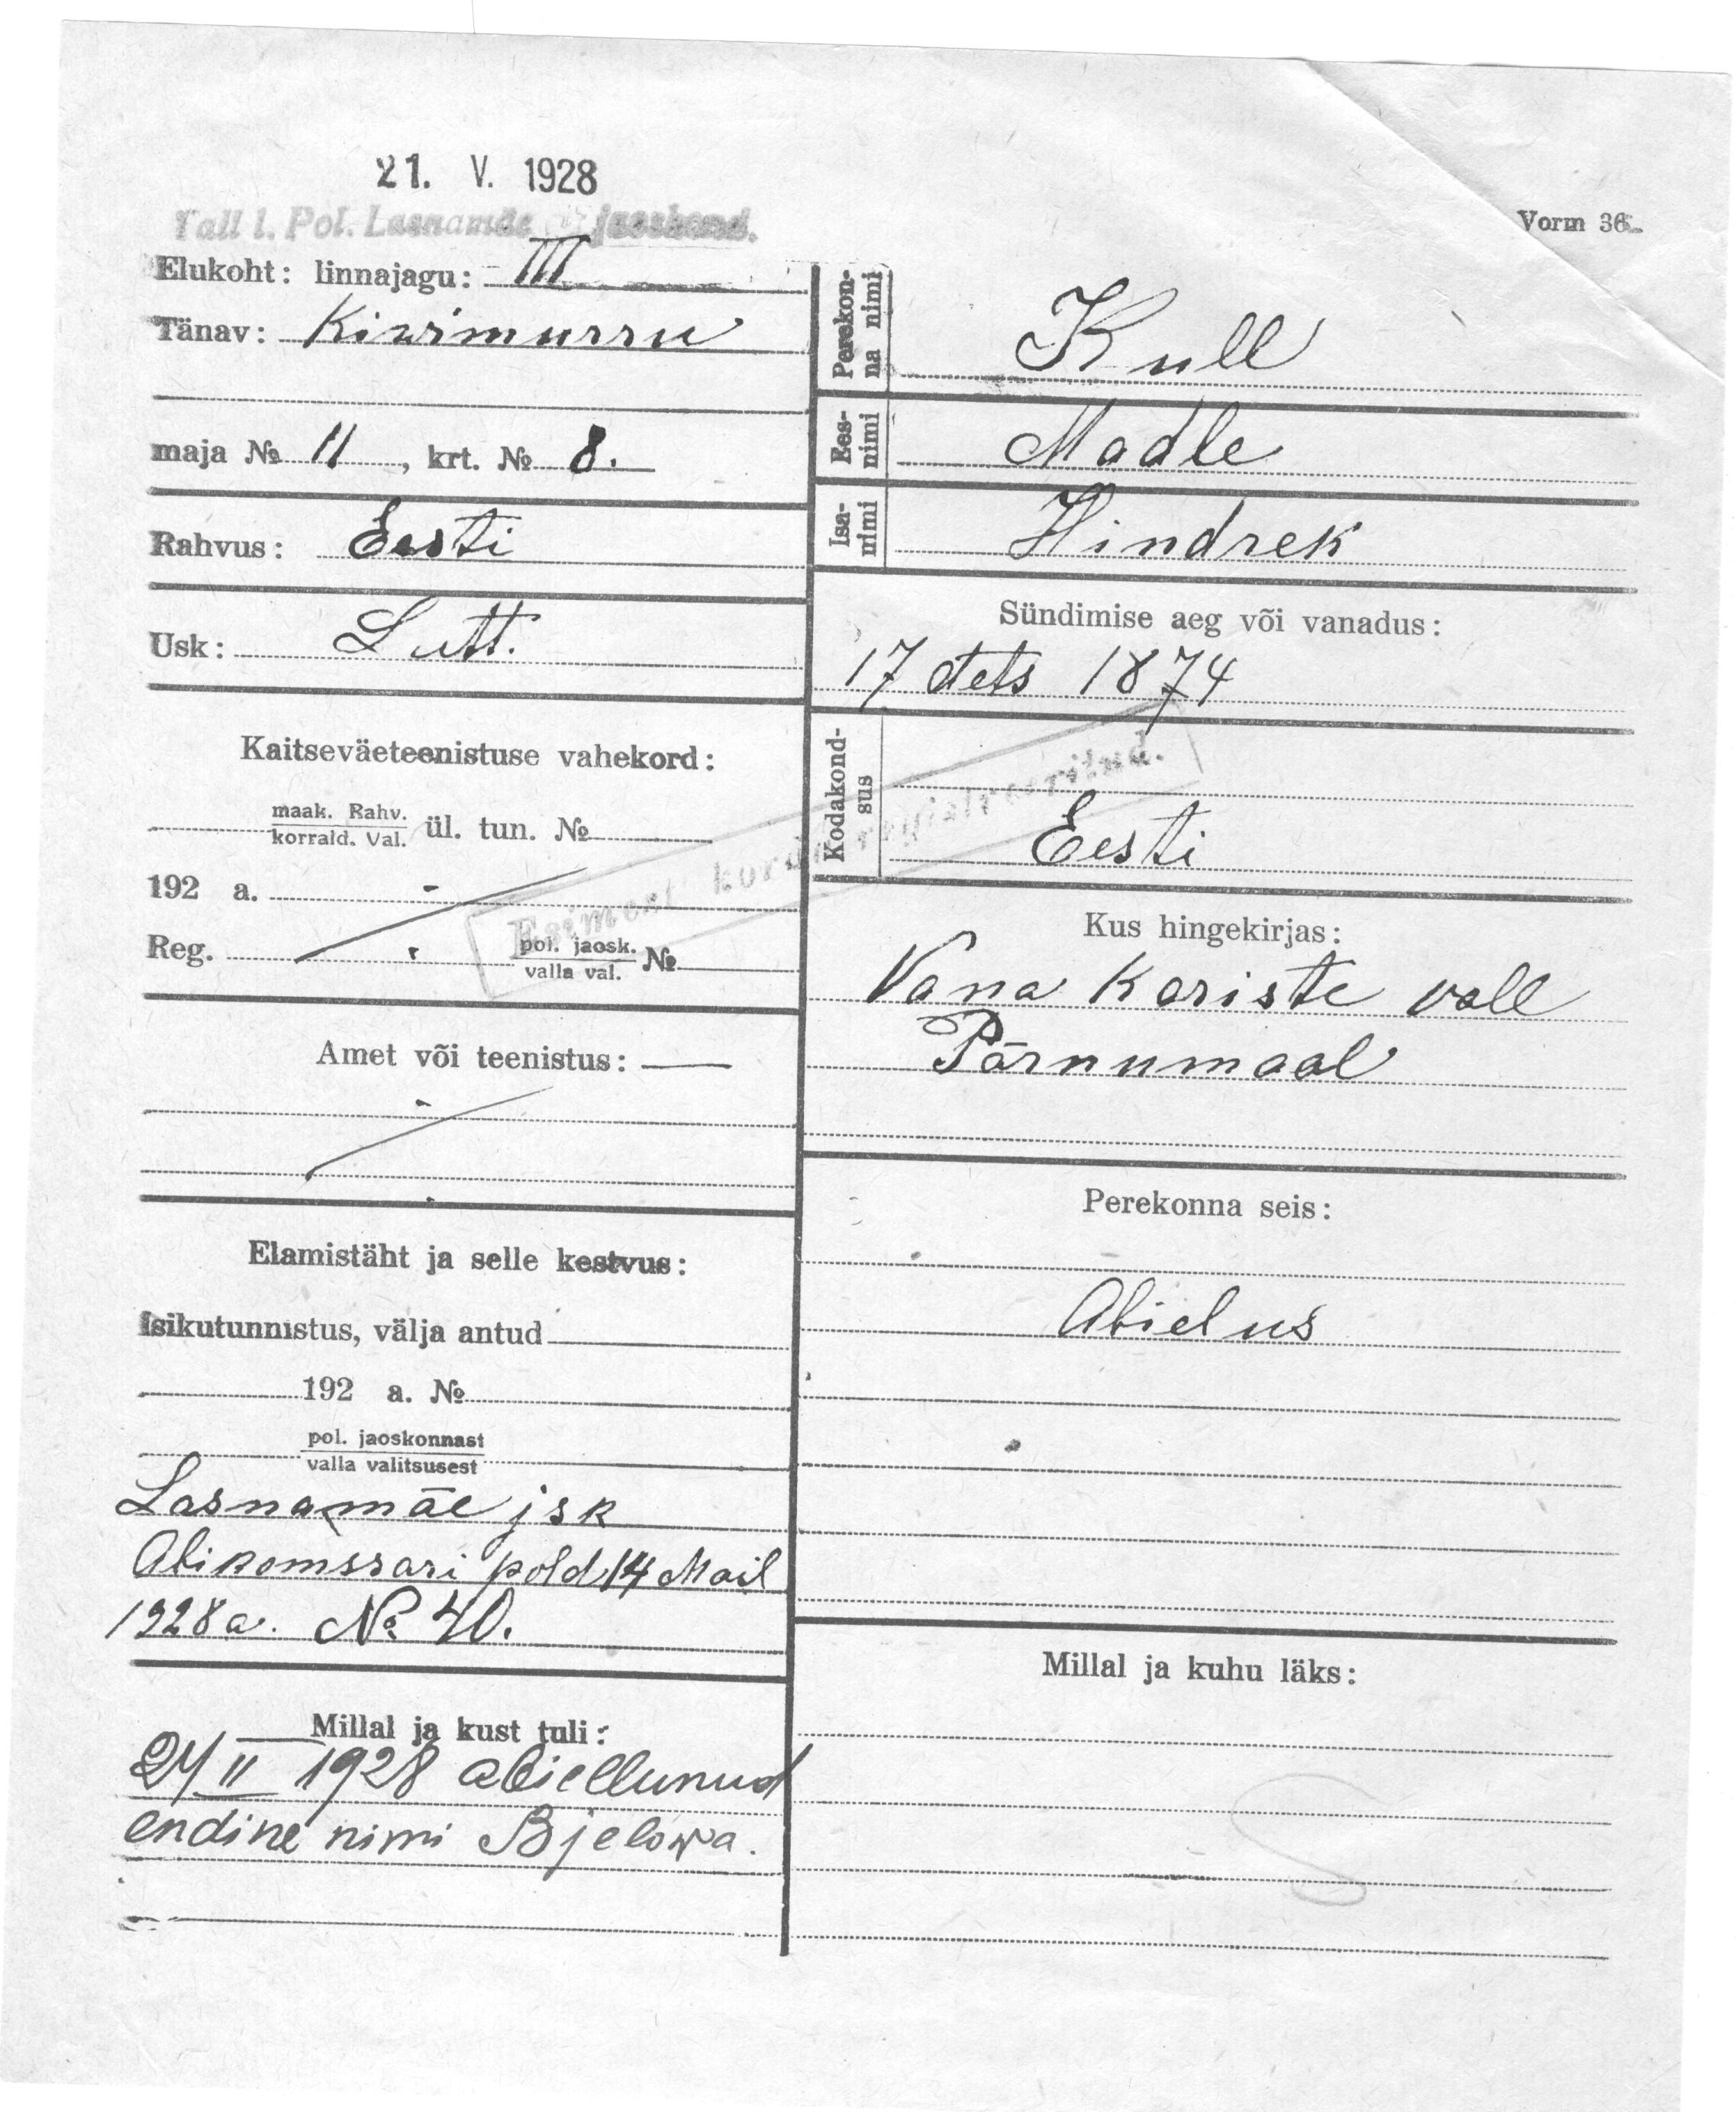 21. V. 1928
Tall l. Pol. Lasnamäe jaoskond.
Vorm 36
Elukoht: linnajagu: III
Tänav: Kiwimurru
maja № 11, krt. № 8.
Rahvus: Eesti
Usk: Lutt.
Kaitseväeteenistuse vahekord:
maak. Rahv.
korrald. Val. ül. tun. №
192 a.
Reg. pol. jaosk. №
valla val.
Esimest korda registreeritud.
Amet või teenistus: —
Elamistäht ja selle kestvus:
Isikutunnistus, välja antud
192 a. №
pol. jaoskonnast
valla valitsusest
Lasnamäe jsk
Abikomssari pold 14 Mail
1928 a. № 40.
Millal ja kust tuli:
24 II 1928 abiellunud
endine nimi Bjelowa.
Perekon-
na nimi
Kull
Ees-
nimi
Madle
Isa-
nimi
Hindrek
Sündimise aeg või vanadus:
17 dets 1874
Kodakond-
sus
Eesti
Kus hingekirjas:
Vana Kariste vall
Pärnumaal
Perekonna seis:
Abielus
Millal ja kuhu läks: